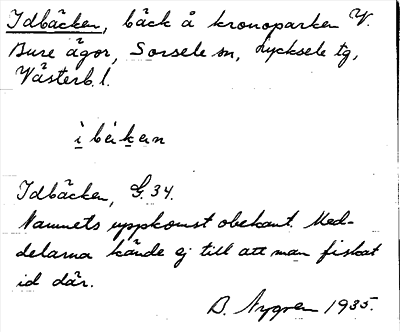 Idbäcken, bäck å kronoparken V.
Bure ägor, Sorsele sn, Lycksele tg,
Västerb. l.
i bekɛn
Idbäcken, G. 34.
Namnets uppkomst obekant. Med-
delarna kände ej till att man fiskat
id där.
B. Nygren 1935.